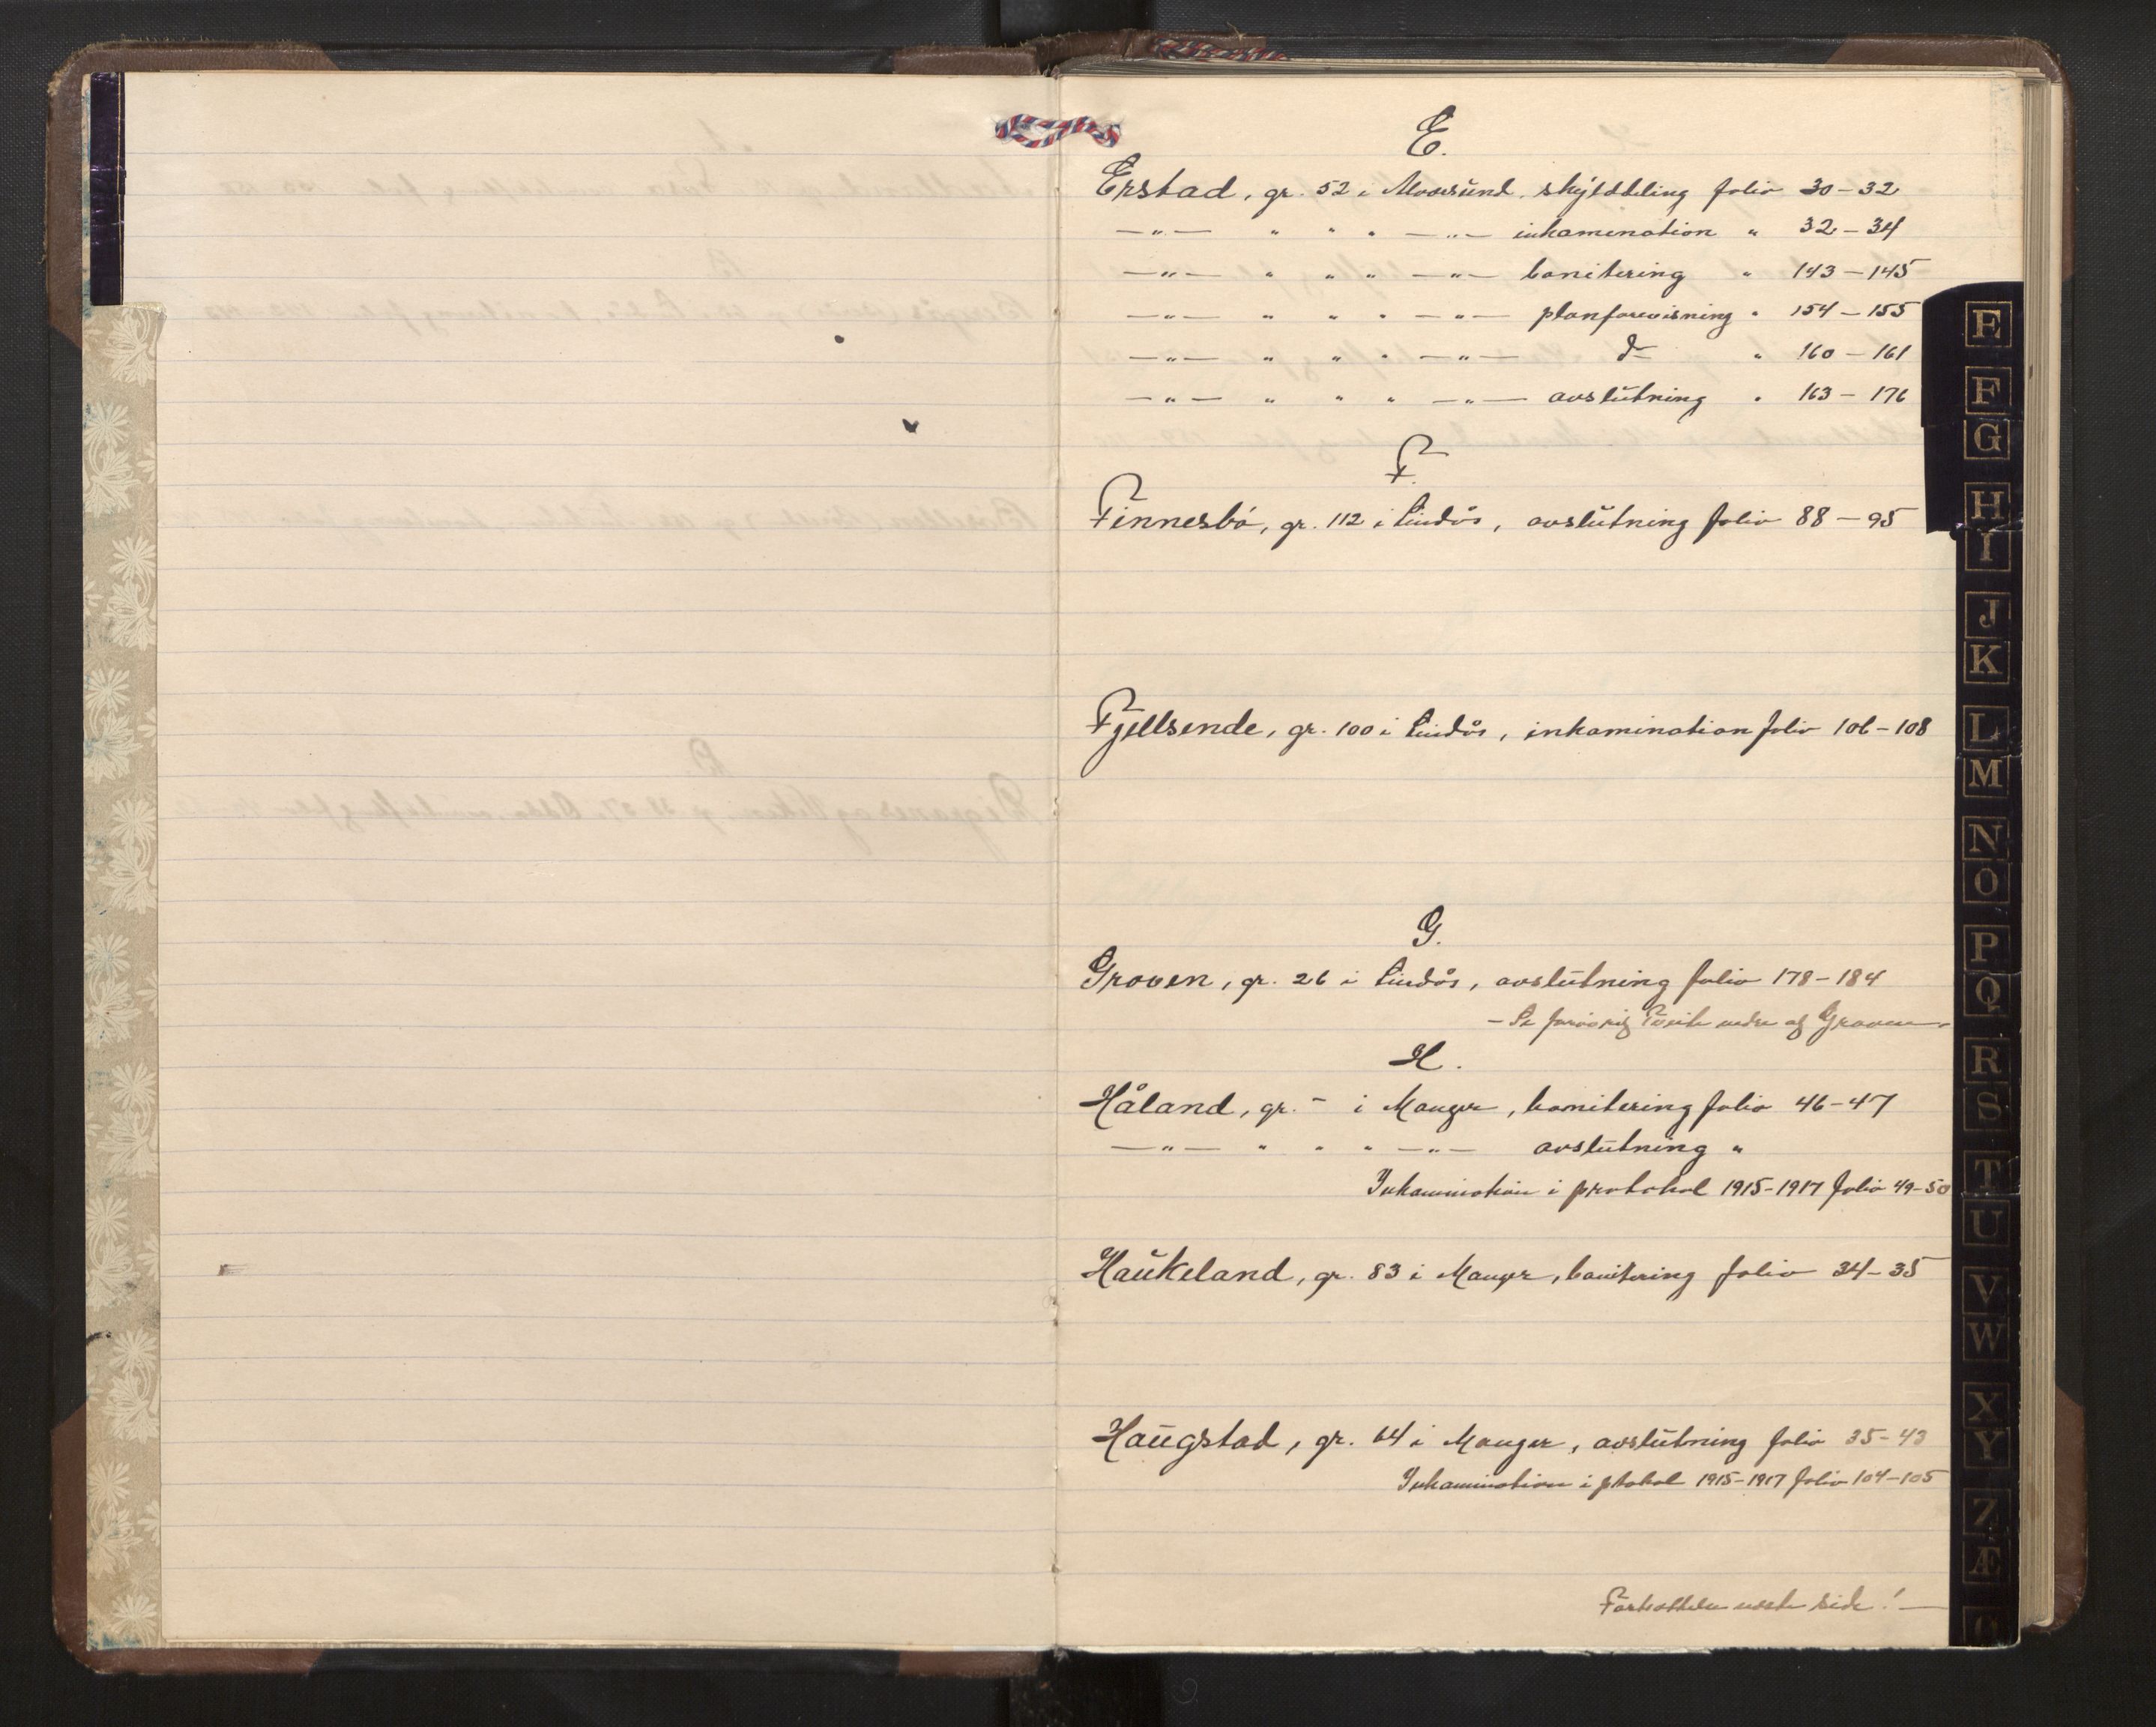 E.
Erstad, gr. 52 i Mosesund, skylddeling folio 30-32
—"— " " " —"— inkamination " 32-34
—"— " " " —"— bonitering " 143-145
—"— " " " —"— planforevisning " 154-155
—"— " " " —"— do " 160-161
—"— " " " —"— avslutning " 163-176
F.
Finnesbö, gr. 112 i Lindås, avslutning folio 88-95
Fjellsende, gr. 100 i Lindås, inkamination folio 106-108
G.
Groven, gr. 26 i Lindås, avslutning folio 178-184
- Se forövrig Tveit nedre og Groven -
H.
Håland, gr. - i Manger, bonitering folio 46-47
—"— " " " —"— avslutning "
Inkamination i protokol 1915-1917 folio 49-50
Haukeland, gr. 83 i Manger, bonitering folio 34-35
Haugstad, gr. 64 i Manger, avslutning folio 35-43
Inkamination i ptokol 1915-1917 folio 104-105
Fortsættelse neste side! —
E
F
G
H
I
J
K
L
M
N
O
P
Q
R
S
T
U
V
W
X
Y
Z
Æ